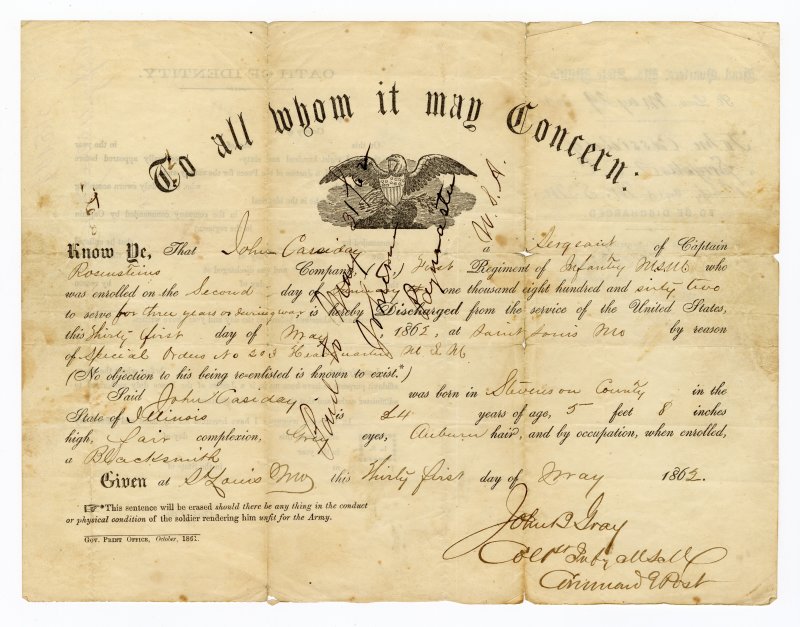 To all whom it may Concern:
Know Ye, That John Casiday a Sergeant of Captain
Rosensteins Company, ( ,) First Regiment of Infantry MSM who
was enrolled on the Second day of one thousand eight hundred and sixty two
to serve for three years or during war is hereby Discharged from the service of the United States,
this Thirty first day of May 1862, at Saint Louis Mo by reason
of Special Orders No 203 Headquarters M S M
(No objection to his being re-enlisted is known to exist.*)
Said John Casiday was born in Stevenson County in the
State of Illinois is 24 years of age, 5 feet 8 inches
high, fair complexion, Grey eyes, Auburn hair, and by occupation, when enrolled,
a Blacksmith
Given at St Louis Mo this Thirty first day of May 1862.
☞*This sentence will be erased should there be any thing in the conduct
or physical condition of the soldier rendering him unfit for the Army.
Gov. Print Office, October, 1861.
John B Gray
Col 1st Inf MSM
Command Post
Paid to May 31/62
Paymaster
U.S.A.
OATH OF IDENTITY.